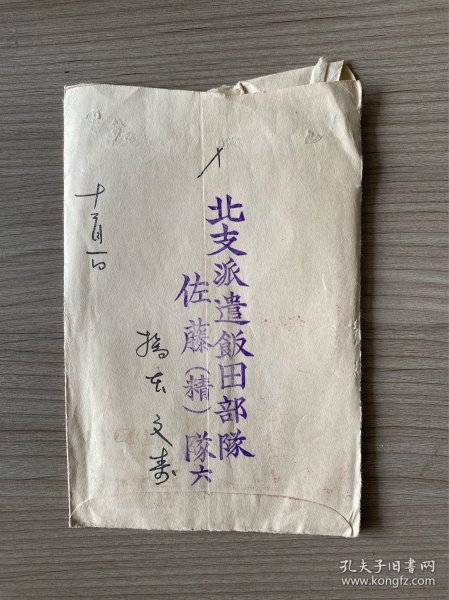 北支派遣飯田部隊
佐藤（精）隊六
橋本文寿
十一月一日
孔夫子旧书网
www.kongfz.com